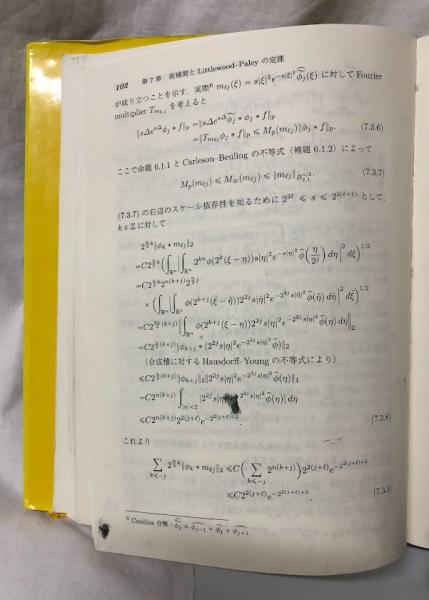 102 第7章 実補間と Littlewood–Paley の定理
が成り立つことを示す. 実際⁶ m_{ℓj}(ξ) = s|ξ|²e^{-s|ξ|²}\widehat{\widetilde{φ_j}}(ξ) に対して Fourier
multiplier T_{m_{ℓj}} を考えると
‖sΔe^{sΔ}φ_j * f‖_p =‖sΔe^{sΔ}\widetilde{φ_j} * φ_j * f‖_p
=‖T_{m_{ℓj}}φ_j * f‖_p ≤ M_p(m_{ℓj})‖φ_j * f‖_p. (7.3.6)
ここで命題 6.1.1 と Carleson–Beuling の不等式 (補題 6.1.2) によって
M_p(m_{ℓj}) ≤ M_∞(m_{ℓj}) ≤ ‖m_{ℓj}‖ (7.3.7)
(7.3.7) の右辺のスケール依存性を知るために 2^{2ℓ} ≤ s ≤ 2^{2(ℓ+1)} として,
k∈ℤ に対して
2^{\frac{n}{2}k}‖φ_k * m_{ℓj}‖_2
=C2^{\frac{n}{2}k}(∫_{ℝⁿ}|∫_{ℝⁿ} 2^{kn}φ(2^k(ξ − η))s|η|²e^{-s|η|²}\widehat{φ}(\frac{η}{2^j}) dη|² dξ)^{1/2}
=C2^{\frac{n}{2}k}2^{n(k+j)}2^{\frac{n}{2}j}
× (∫_{ℝⁿ}|∫_{ℝⁿ} φ(2^{k+j}(ξ̃ − η̃))2^{2j}s|η̃|²e^{-2^{2j}s|η̃|²}\widehat{φ}(η̃) dη̃|² dξ̃)^{1/2}
φ(2^{k+j}(ξ − η))2^{2j}s|η|²e^{-2^{2j}s|η|²}\widehat{φ}(η) dη‖_2
=C2^{\frac{n}{2}(k+j)}‖φ_{k+j} * (2^{2j}s|η|²e^{-2^{2j}s|η|²}\widehat{φ}(η))‖_2
(合成積に対する Hausdorff–Young の不等式により)
≤C2^{\frac{n}{2}(k+j)}‖φ_{k+j}‖_2‖2^{2j}s|η|²e^{-2^{2j}s|η|²}\widehat{φ}(η)‖_1
=C2^{n(k+j)}∫_{|η|<2}|2^{2j}s|η|² \widehat{φ}(η)| dη
≤C2^{n(k+j)}2^{2(j+ℓ)}e^{-2^{2(j+ℓ)-2}} (7.3.8)
これより
∑_{k≤−j} 2^{\frac{n}{2}k}‖φ_k * m_{ℓj}‖_2 ≤C(∑_{k≤−j} 2^{n(k+j)})2^{2(j+ℓ)}e^{-2^{2(j+ℓ)-2}}
≤C2^{2(j+ℓ)}e^{-2^{2(j+ℓ)-2}} (7.3.9)